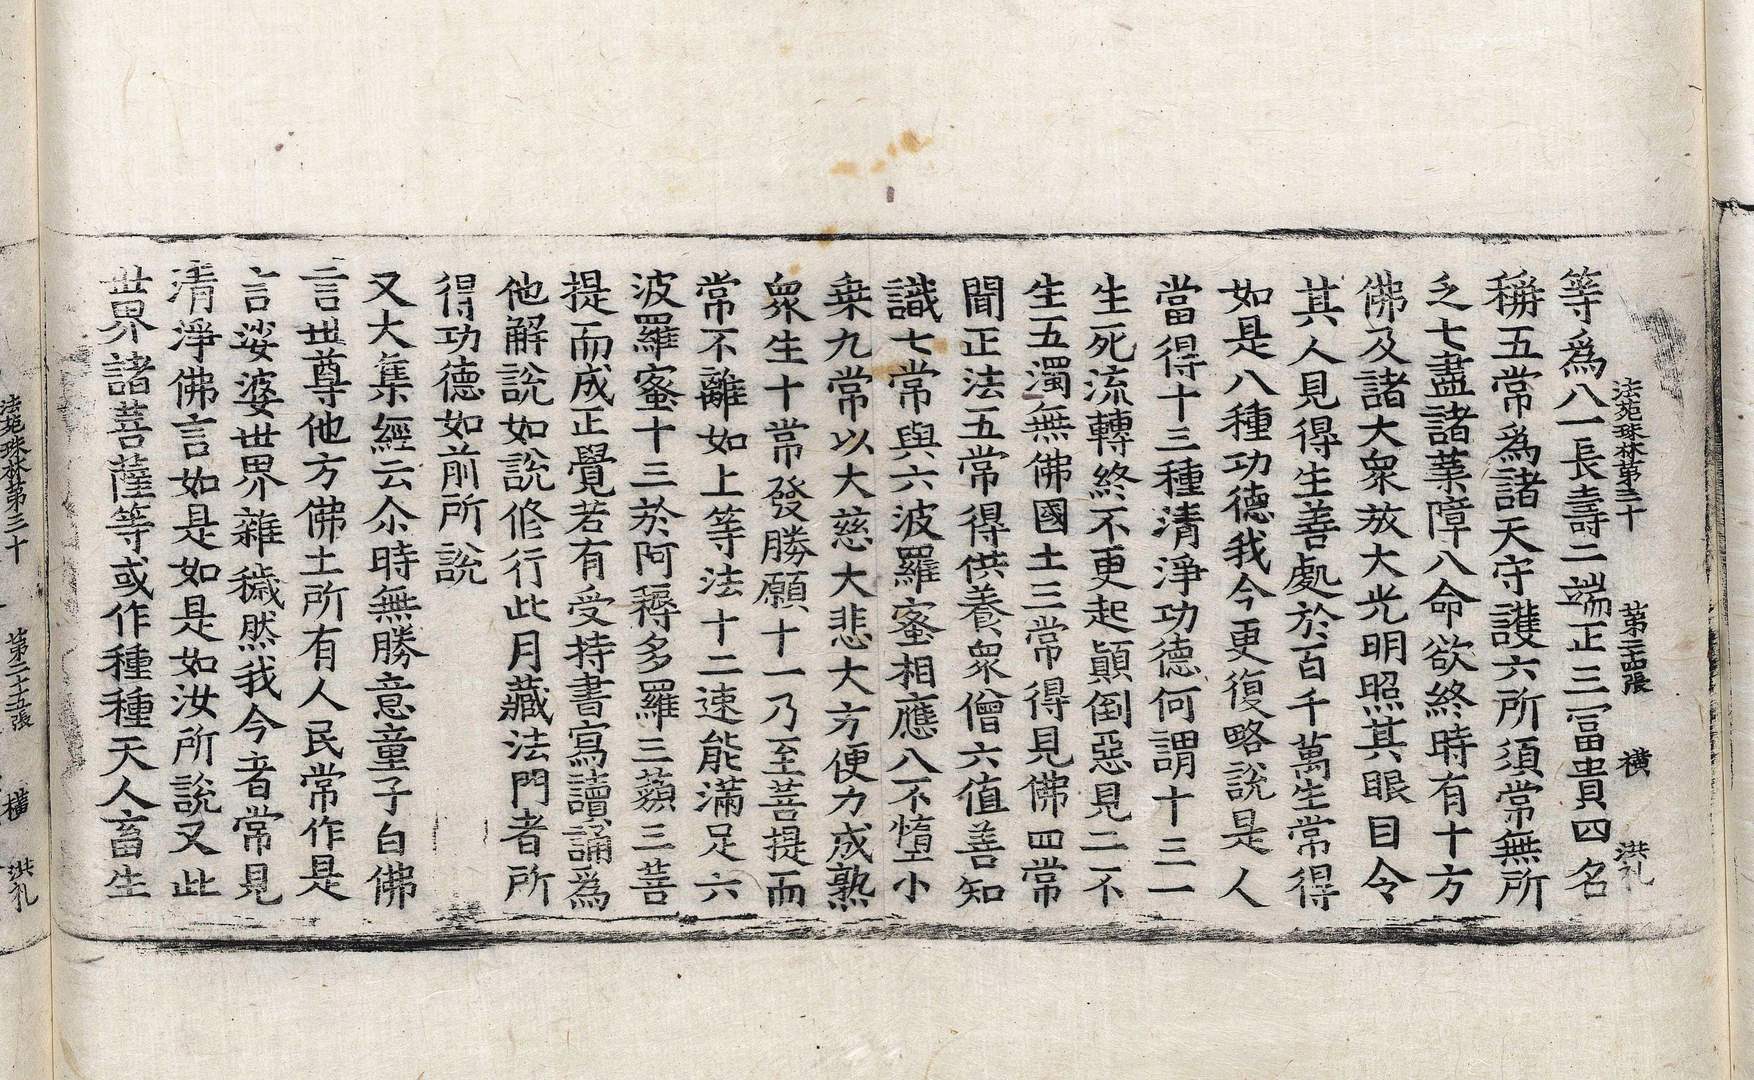 法苑珠林第三十　第二十四張　横　洪礼
等爲八一長壽二端正三冨貴四名
稱五常爲諸天守護六所須常無所
乏七盡諸業障八命欲終時有十方
佛及諸大衆放大光明照其眼目令
其人見得生善處於百千萬生常得
如是八種功德我今更復略說是人
當得十三種清淨功德何謂十三一
生死流轉終不更起顚倒惡見二不
生五濁無佛國土三常得見佛四常
聞正法五常得供養衆僧六值善知
識七常與六波羅蜜相應八不墮小
乘九常以大慈大悲大方便力成熟
衆生十常發勝願十一乃至菩提而
常不離如上等法十二速能滿足六
波羅蜜十三於阿耨多羅三藐三菩
提而成正覺若有受持書寫讀誦爲
他解說如說修行此月藏法門者所
得功德如前所說
又大集經云尒時無勝意童子白佛
言世尊他方佛土所有人民常作是
言娑婆世界雜穢然我今者常見
清淨佛言如是如是如汝所說又此
世界諸菩薩等或作種種天人畜生
法苑珠林第三十　第二十五張　横　洪礼